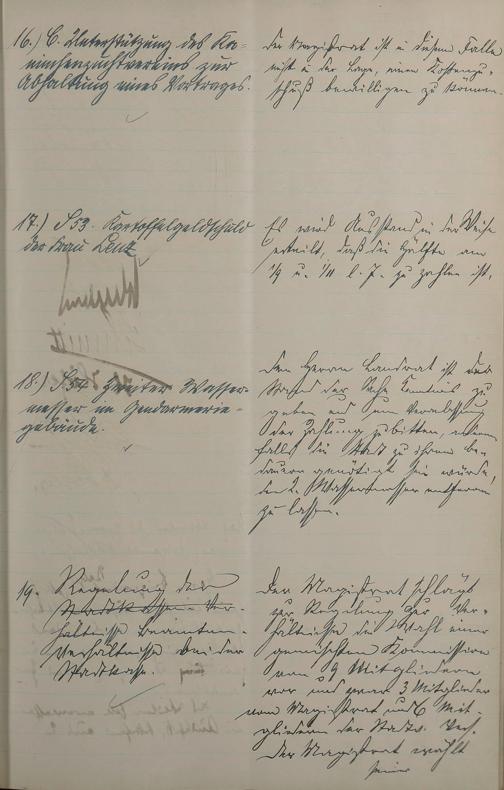 16.) C. Unterstützung des Ka-
ninchenzuchtvereins zur
Abhaltung eines Vortrages.
Der Magistrat ist in diesem Falle
nicht in der Lage, einen Kostenzu-
schuß bewilligen zu können.
17.) S 53. Kartoffelgeldschuld
der Frau Lenz
Es wird Ausstand in der Weise
erteilt, daß die Hälfte am
1/9 u. 1/11 l. J. zu zahlen ist.
18.) S 54 Zweiter Wasser-
messer im Gendarmerie-
gebäude.
Dem Herrn Landrat ist der
Stand der Sache Kenntnis zu
geben und um Veranlassung
der Zahlung zu bitten, andern-
falls die Stadt zu ihrem Be-
dauern genötigt sein würde,
den 2. Wassermesser entfernen
zu lassen.
19. Regelung der
Stadtkassen Ver-
hältnisse Beamten-
verhältnisse bei der
Stadtkasse.
Der Magistrat schlägt
zur Regelung der Ver-
hältnisse die Wahl einer
gemischten Kommission
von 9 Mitgliedern
vor und zwar 3 Mitglieder
vom Magistrat und 6 Mit-
gliedern der Stadtv. Vers.
Der Magistrat wählt
seiner